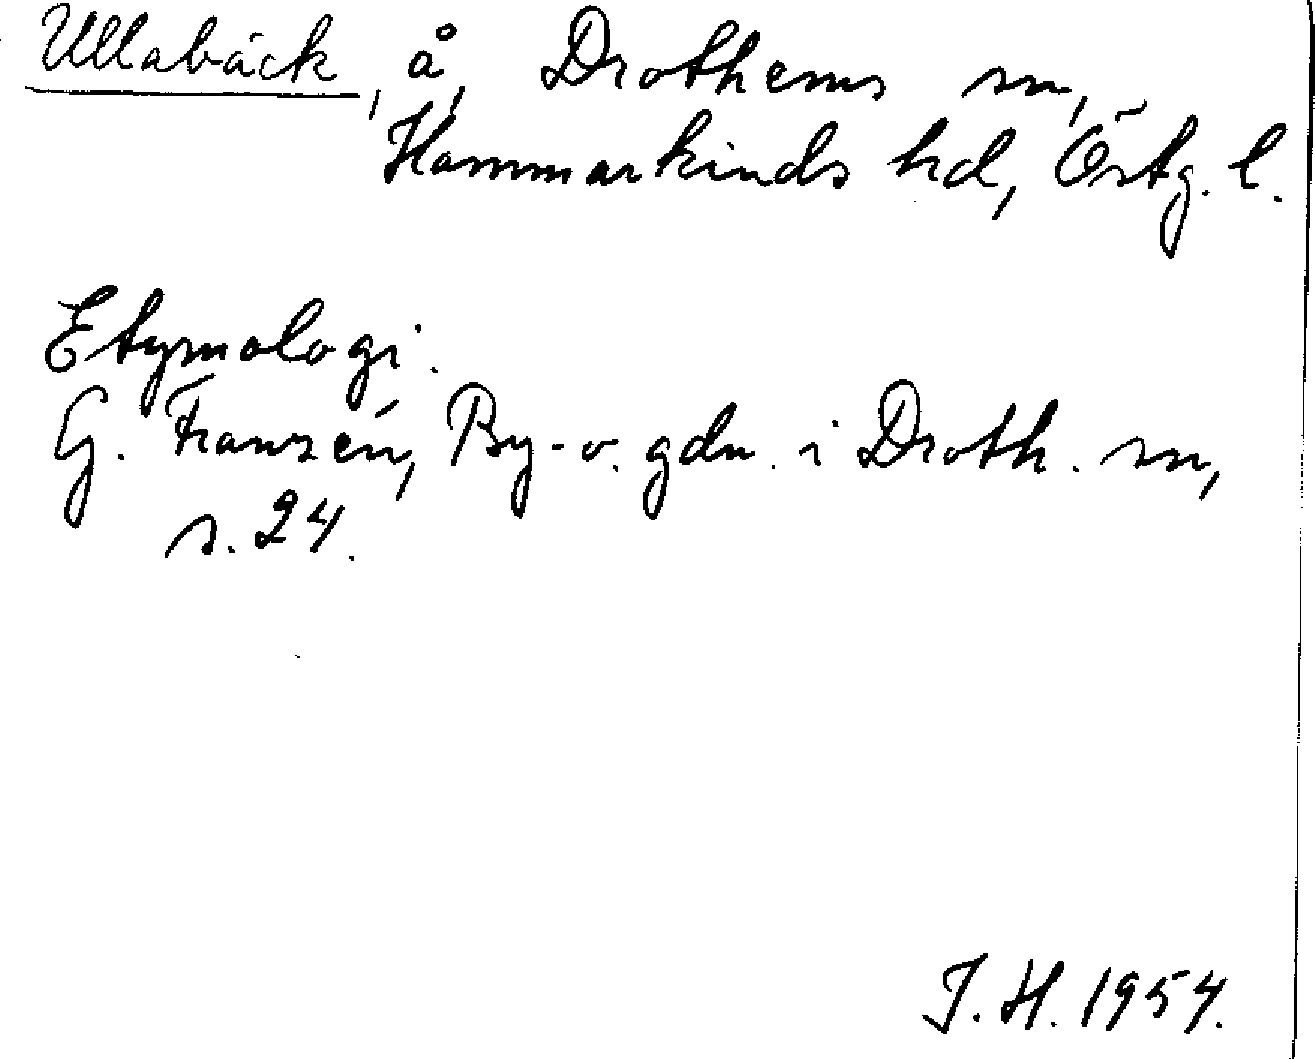 Ullabäck, å, Drothems sn,
Hammarkinds hd, Östg. l.
Etymologi.
G. Franzén, By- o. gdn. i Droth. sn,
s. 24.
J. H. 1954.